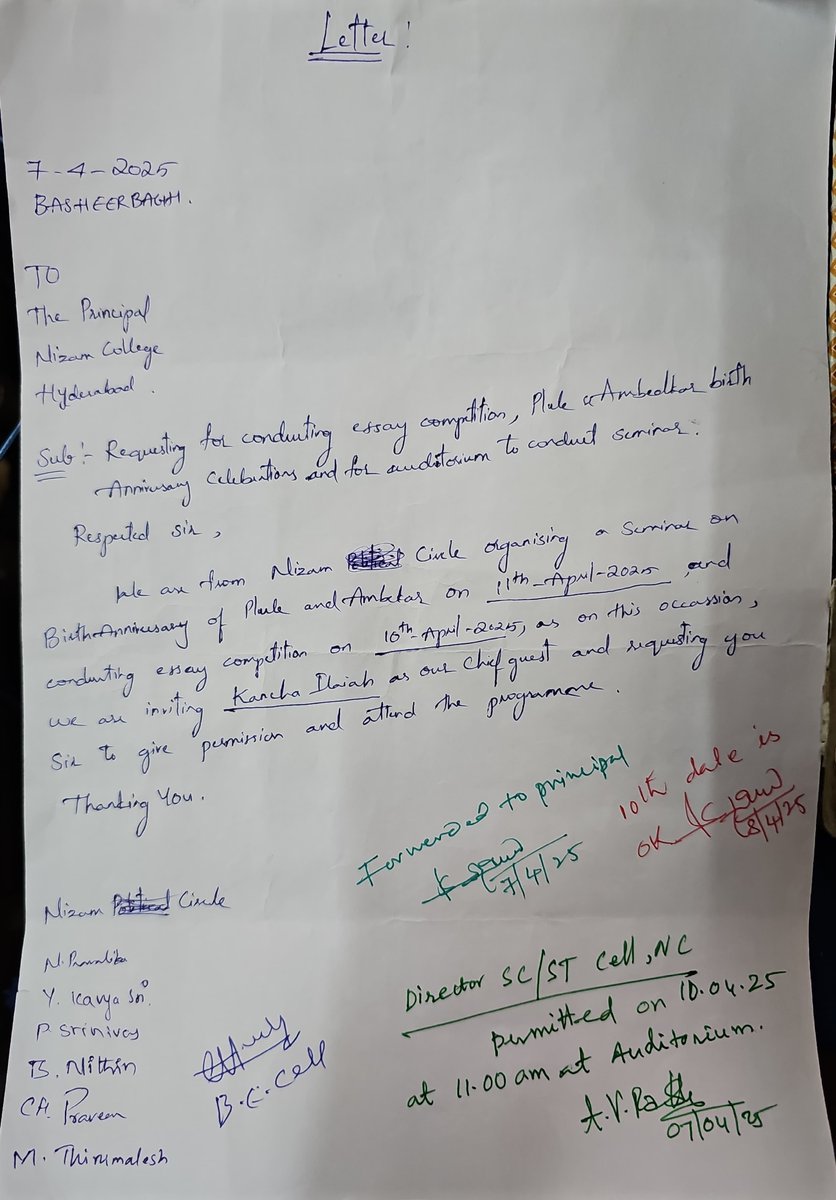 Letter!
7-4-2025
BASHEERBAGH.
TO
The Principal
Nizam College
Hyderabad.
Sub:- Requesting for conducting essay competition, Phule & Ambedkar birth
Anniversary Celebrations and for auditorium to conduct seminar.
Respected sir,
We are from Nizam Circle organising a Seminar on
Birth Anniversary of Phule and Ambekar on 11th-April-2025, and
conducting essay competition on 10th-April-2025, as on this occassion,
we are inviting Kancha Ilaiah as our chief guest and requesting you
Sir to give permission and attend the programme.
Thanking You.
Forwarded to principal
7/4/25
10th date is
OK
8/4/25
Nizam Circle
N. Pranalika
Y. Kavya Sri.
P. Srinivas
B. Nithin
CH. Praveen
M. Thirumalesh
B.C. Cell
Director SC/ST Cell, NC
permitted on 10.04.25
at 11.00 am at Auditorium.
A.V.
07/04/25